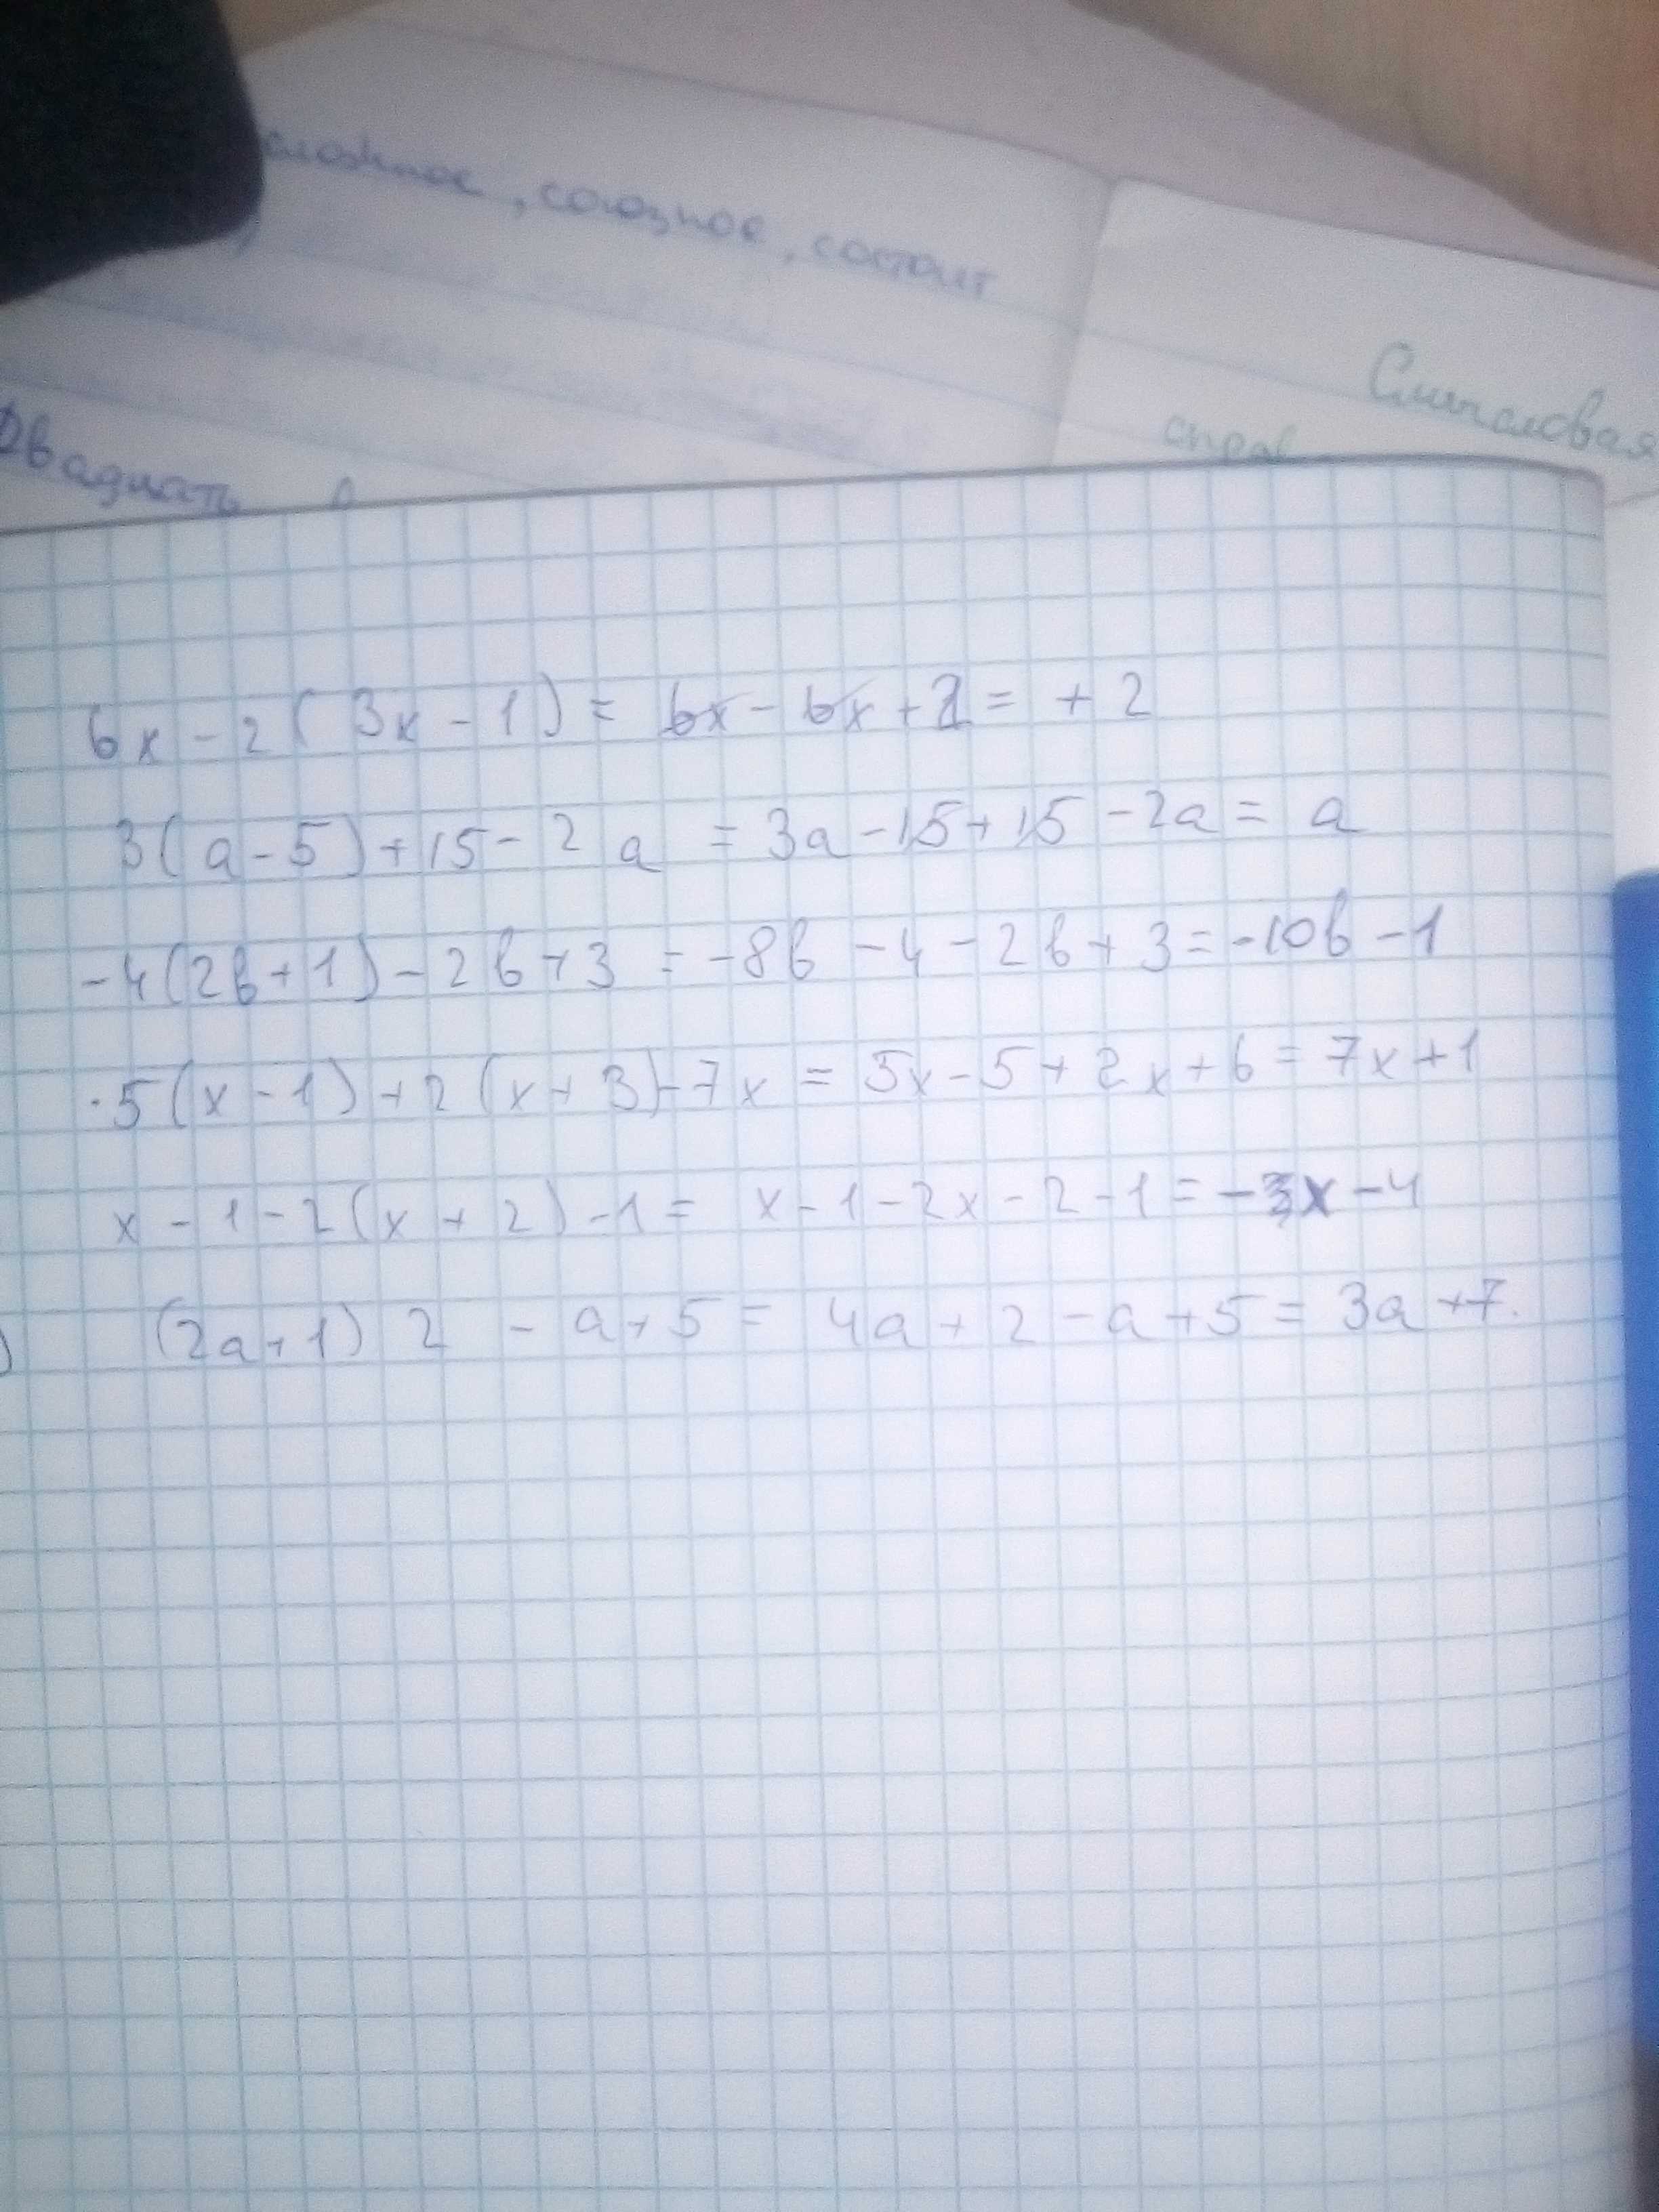 сложное, союзное, состоит
Смысловая
Двадцать
6x - 2(3x - 1) = 6x - 6x + 2 = + 2
3(a - 5) + 15 - 2a = 3a - 15 + 15 - 2a = a
-4(2b + 1) - 2b + 3 = -8b - 4 - 2b + 3 = -10b - 1
·5(x - 1) + 2(x + 3) - 7x = 5x - 5 + 2x + 6 = 7x + 1
x - 1 - 2(x + 2) - 1 = x - 1 - 2x - 2 - 1 = -3x - 4
) (2a + 1) 2 - a + 5 = 4a + 2 - a + 5 = 3a + 7.